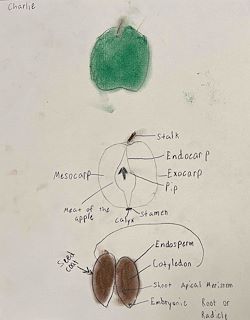 Charlie
Stalk
Endocarp
Mesocarp
Exocarp
Pip
Meat of the
apple
Stamen
Calyx
Endosperm
Seed
coat
Cotyledon
Shoot Apical Meristem
Embryonic Root or
Radicle